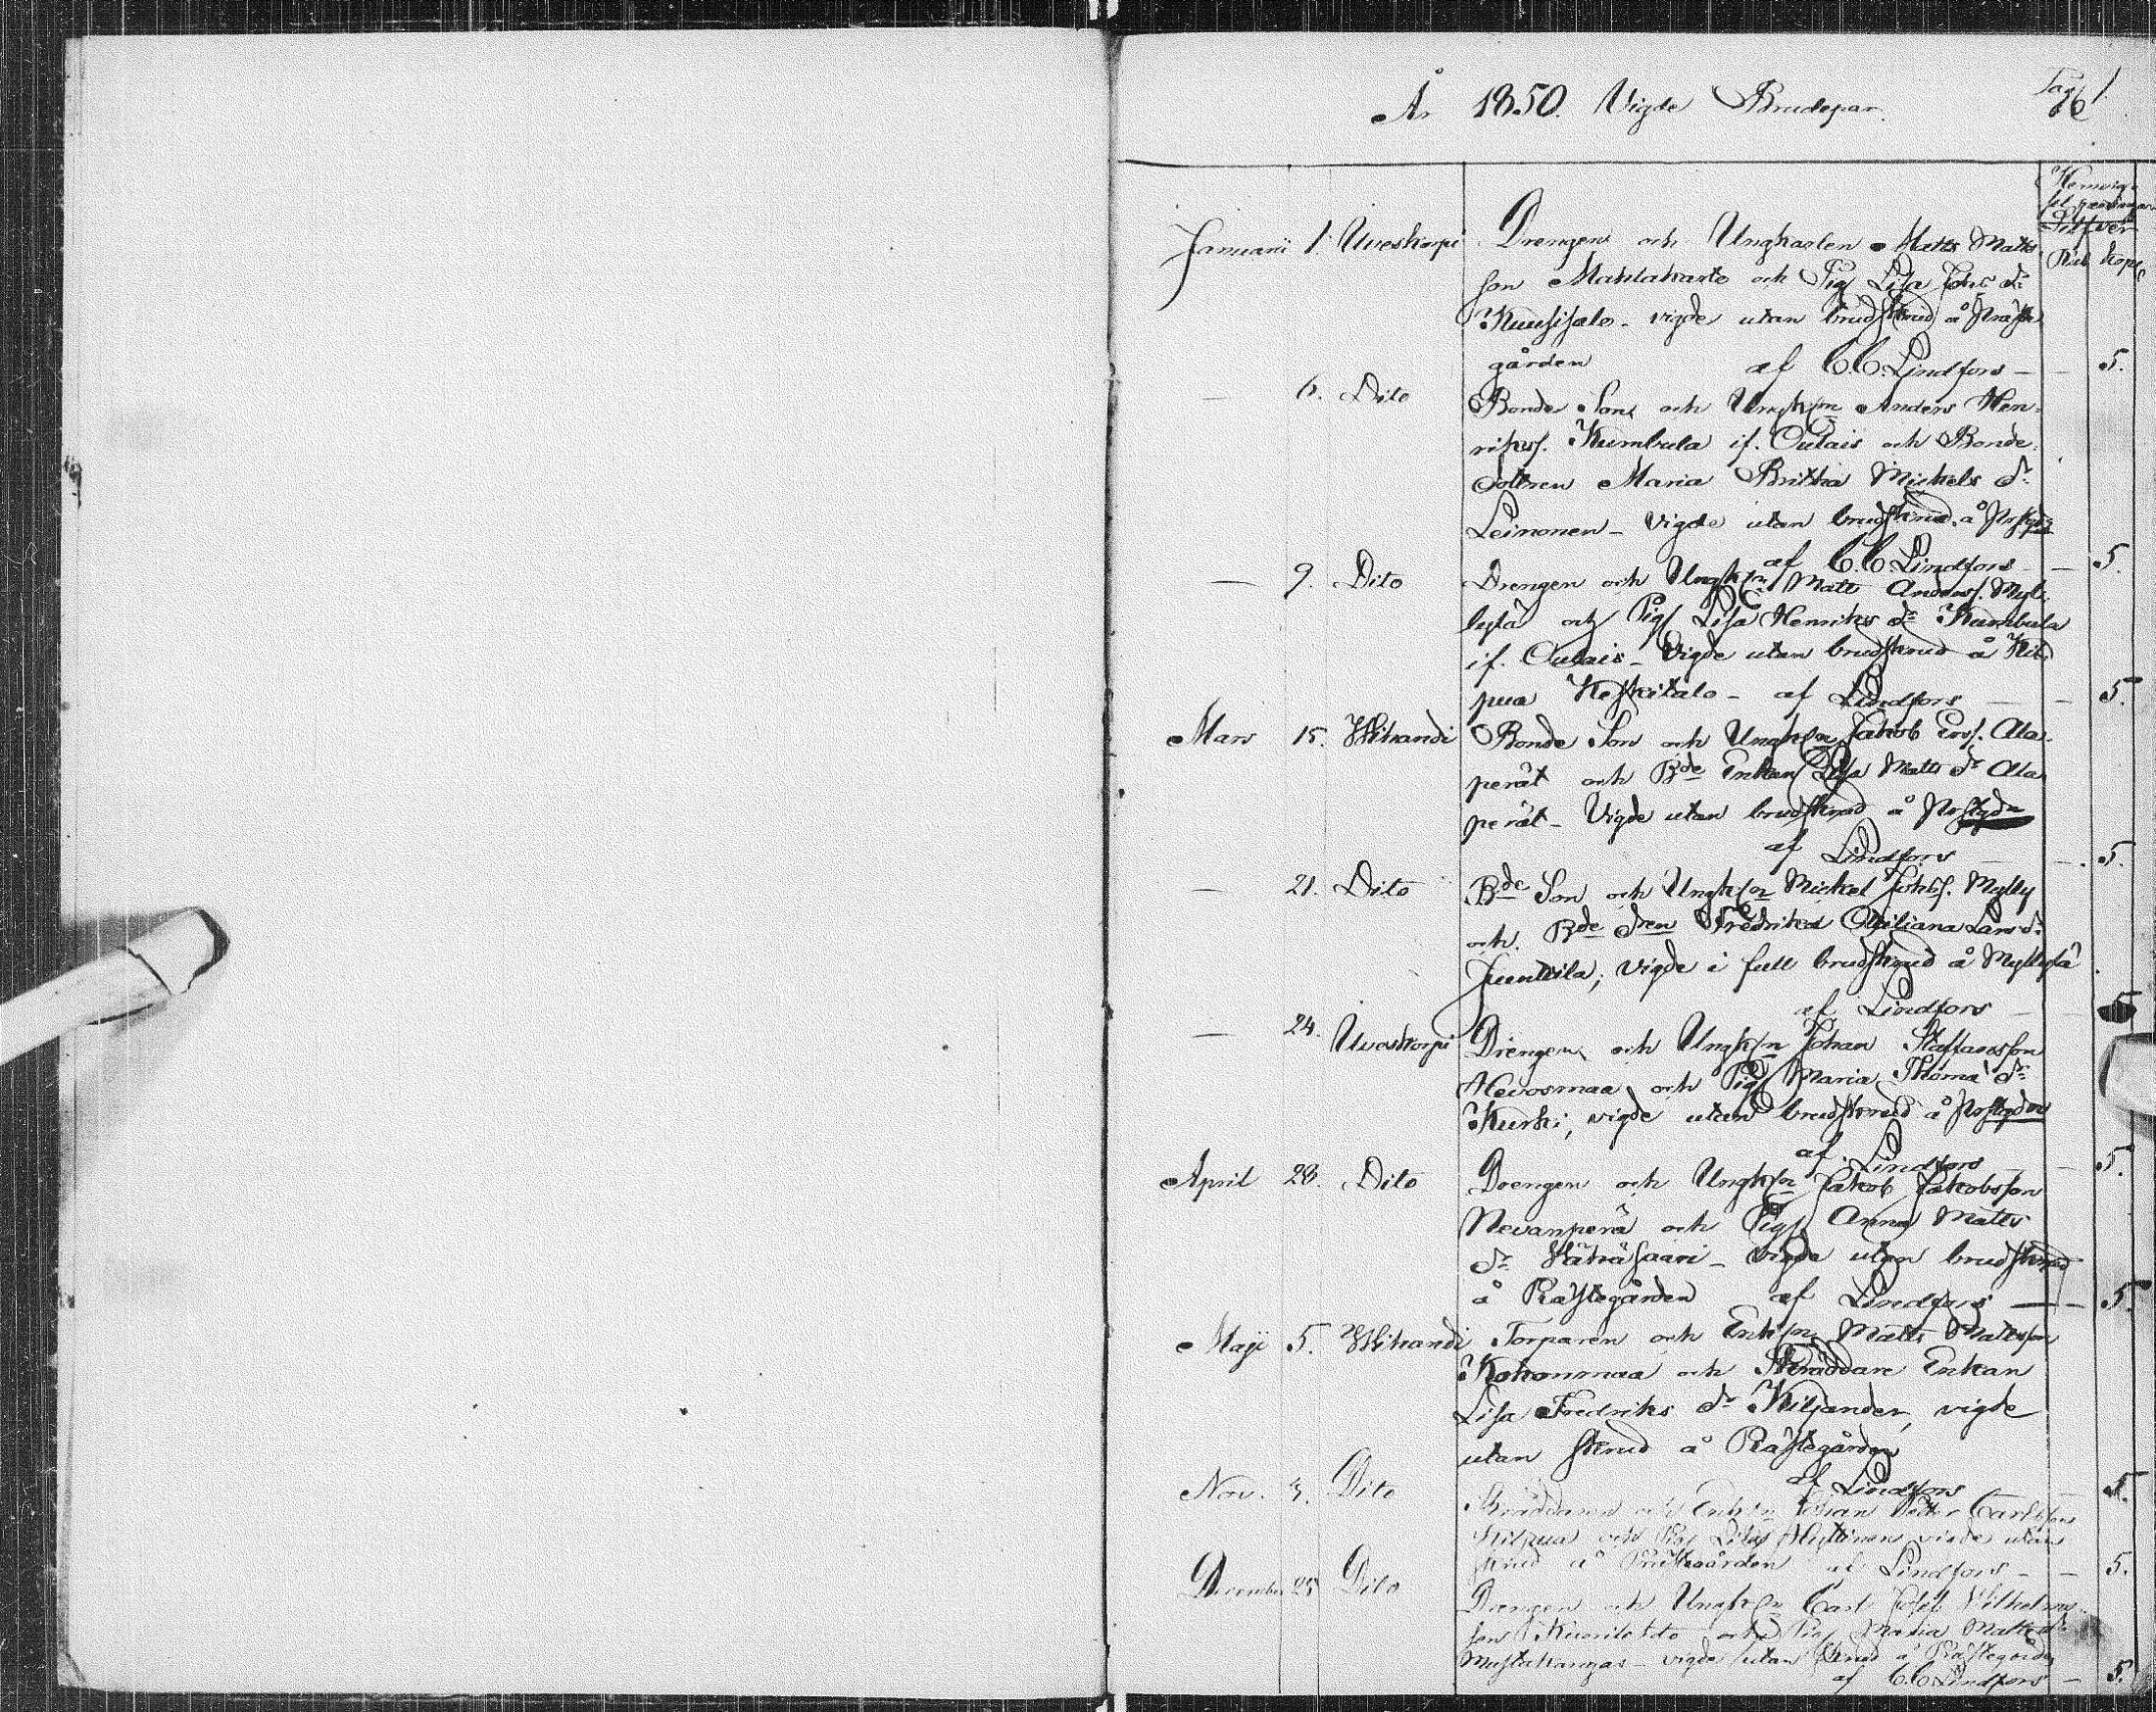 År 1850. Vigde Brudepar.
Pag. 1.
Silfver
Rub Kop.
Januarii 1. Uveskorpi Drengen och Ungkarlen Matts Matts
son Mahlakarto och Pig. Lisa Johs dr
Kuusisalo - vigde utan brudskrud å Präste
gården af C. C. Lindfors — — 5.
— 6. Dito Bonde Son och Ungk:n Anders Hen-
rikss. Kumbula if. Oulais och Bonde
dottren Maria Britha Mickels dr
Leinonen - Vigde utan brudskrud å Prstgd
af C. C. Lindfors — — 5.
— 9. Dito Drengen och Ungk:n Matts Anderss. Myl-
lylä och Pig. Lisa Henriks dr Kumbula
if. Oulais - Vigde utan brudskrud å Kil-
pua Keskitalo - af Lindfors — — 5.
Mars 15. Bonde Son och Ungk:n Jakob Ers. Ala-
perät och Bde Enkan Lisa Matts dr Ala
perät - Vigde utan brudskrud å Prstgd
af Lindfors — — 5.
— 21. Dito Bde Son och Ungk:n Mickel Johss. Mylly
och Bde dren Fredrika Lars dr
Junttila; vigde i full brudskrud å Myllylä
af Lindfors — — 5
— 24. Uveskorpi Drengen och Ungk:n Johan Staffansson
Hevosmaa och Pig. Maria Thoma dr
Kurki, vigde utan brudskrud å Prstgden
af Lindfors — — 5.
April 28. Dito Drengen och Ungk:n Jakob Jakobsson
Nevanperä och Pig. Anna Matts
dr Vähäsaari - vigde utan brudskrud
å Prästegården af Lindfors — — 5.
Maji 5. Torparen och Enk:n Matts Mattsson
Kokonmaa och Skräddare Enkan
Lisa Fredriks dr Kiljander, vigde
utan skrud å Prästegården
af Lindfors — 5.
Nov. 3. Dito Skräddaren och Enk:n Johan Petter Carlsson
Kilpua och Pig. Lisa Hyttinen vigde utan
skrud å Prästegården af Lindfors — — 5.
December 25 Dito Drengen och Ungk:n Carl Josef Wilhelms
son och Pig. Maria Matts dr
Mustakangas - vigde utan skrud å Prästegården
af C. C. Lindfors — 5.